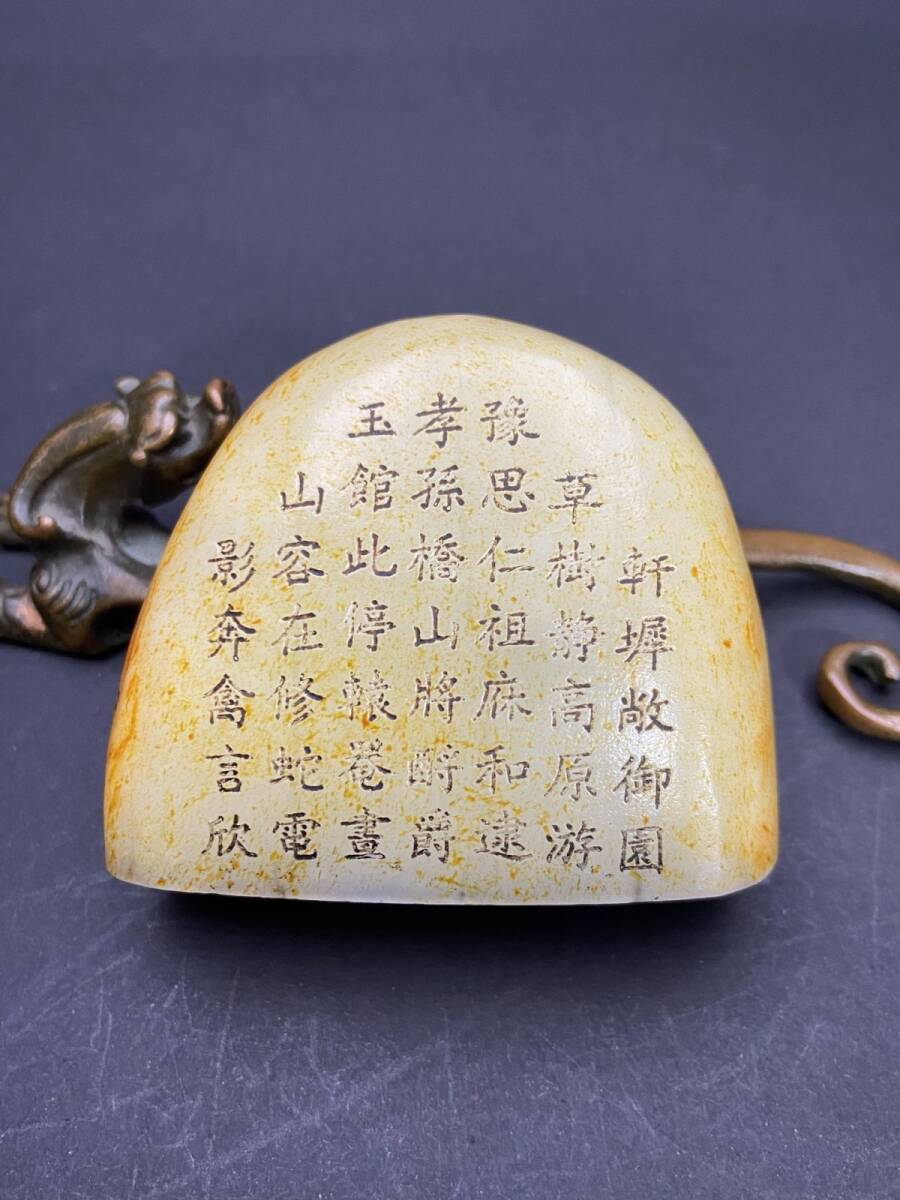 軒墀敞御園
草樹静高原游
豫思仁祖庥和逮
孝孫橋山將酹爵
玉館此停轅罨畫
山容在修蛇電
影奔禽言欣